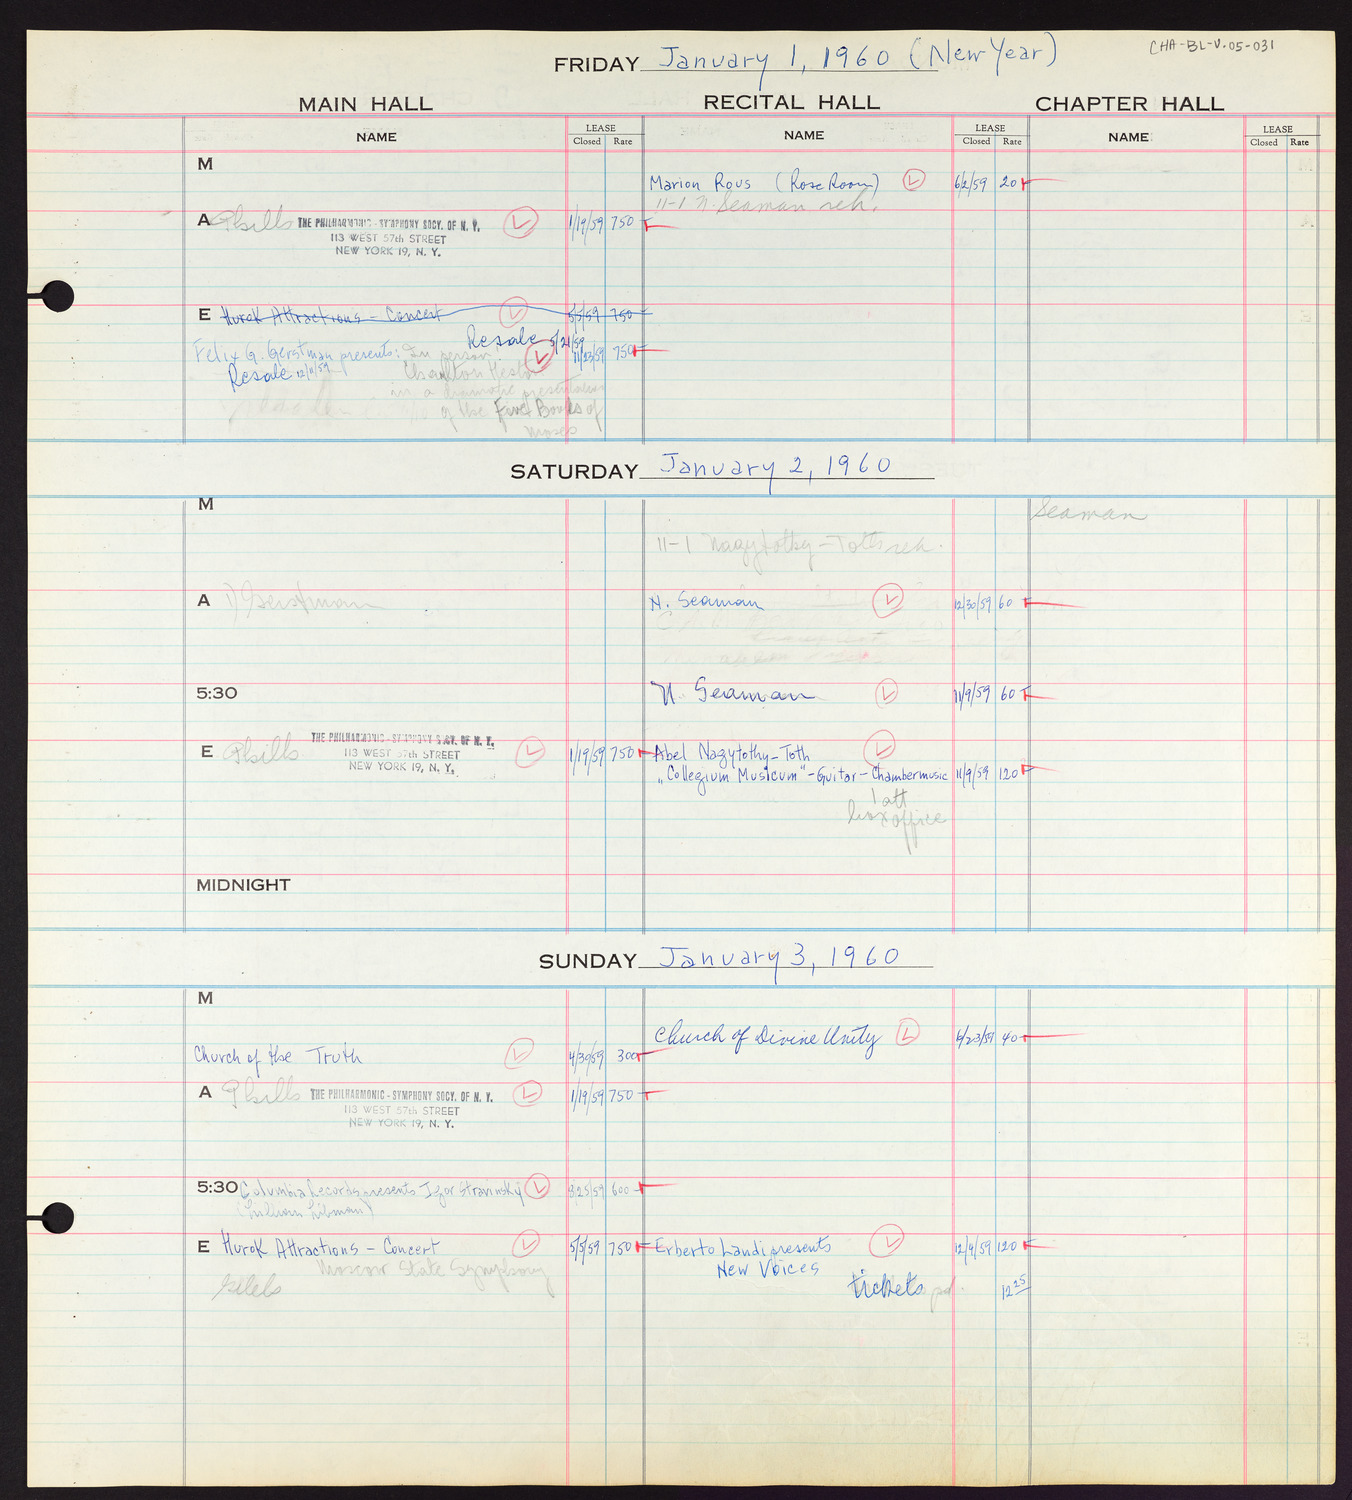 CHA-BL-V.05-031
FRIDAY January 1, 1960 (New Year)
MAIN HALL RECITAL HALL CHAPTER HALL
NAME LEASE Closed Rate NAME LEASE Closed Rate NAME LEASE Closed Rate
M
Marion Rous (Rose Room) 6/2/59 20
11-1 N. Seaman reh.
A THE PHILHARMONIC-SYMPHONY SOCY. OF N. Y. 1/19/59 750
113 WEST 57th STREET
NEW YORK 19, N. Y.
E Hurok Attractions - Concert 5/5/59 750
Resale 5/21/59
Felix G. Gerstman presents: In person 11/23/59 750
Resale 12/11/59 Charlton Heston
in a dramatic presentation
of the Five Books of
Moses
SATURDAY January 2, 1960
M
Seaman
11-1 Nagytothy-Toth reh.
A Gerstman N. Seaman 12/30/59 60
5:30 N. Seaman 11/9/59 60
E THE PHILHARMONIC-SYMPHONY SOCY. OF N. Y. 1/19/59 750 Abel Nagytothy-Toth
113 WEST 57th STREET
NEW YORK 19, N. Y.
"Collegium Musicum"-Guitar-Chambermusic 11/9/59 120
1 att
box office
MIDNIGHT
SUNDAY January 3, 1960
M
Church of Divine Unity 6/23/59 40
Church of the Truth 4/30/59 300
A THE PHILHARMONIC-SYMPHONY SOCY. OF N. Y. 1/19/59 750
113 WEST 57th STREET
NEW YORK 19, N. Y.
5:30 Columbia Records presents Igor Stravinsky 9/25/59 600
(Lillian Libman)
E Hurok Attractions - Concert 5/5/59 750 Erberto Landi presents 12/9/59 120
Moscow State Symphony New Voices
Gilels tickets pd. 12 25